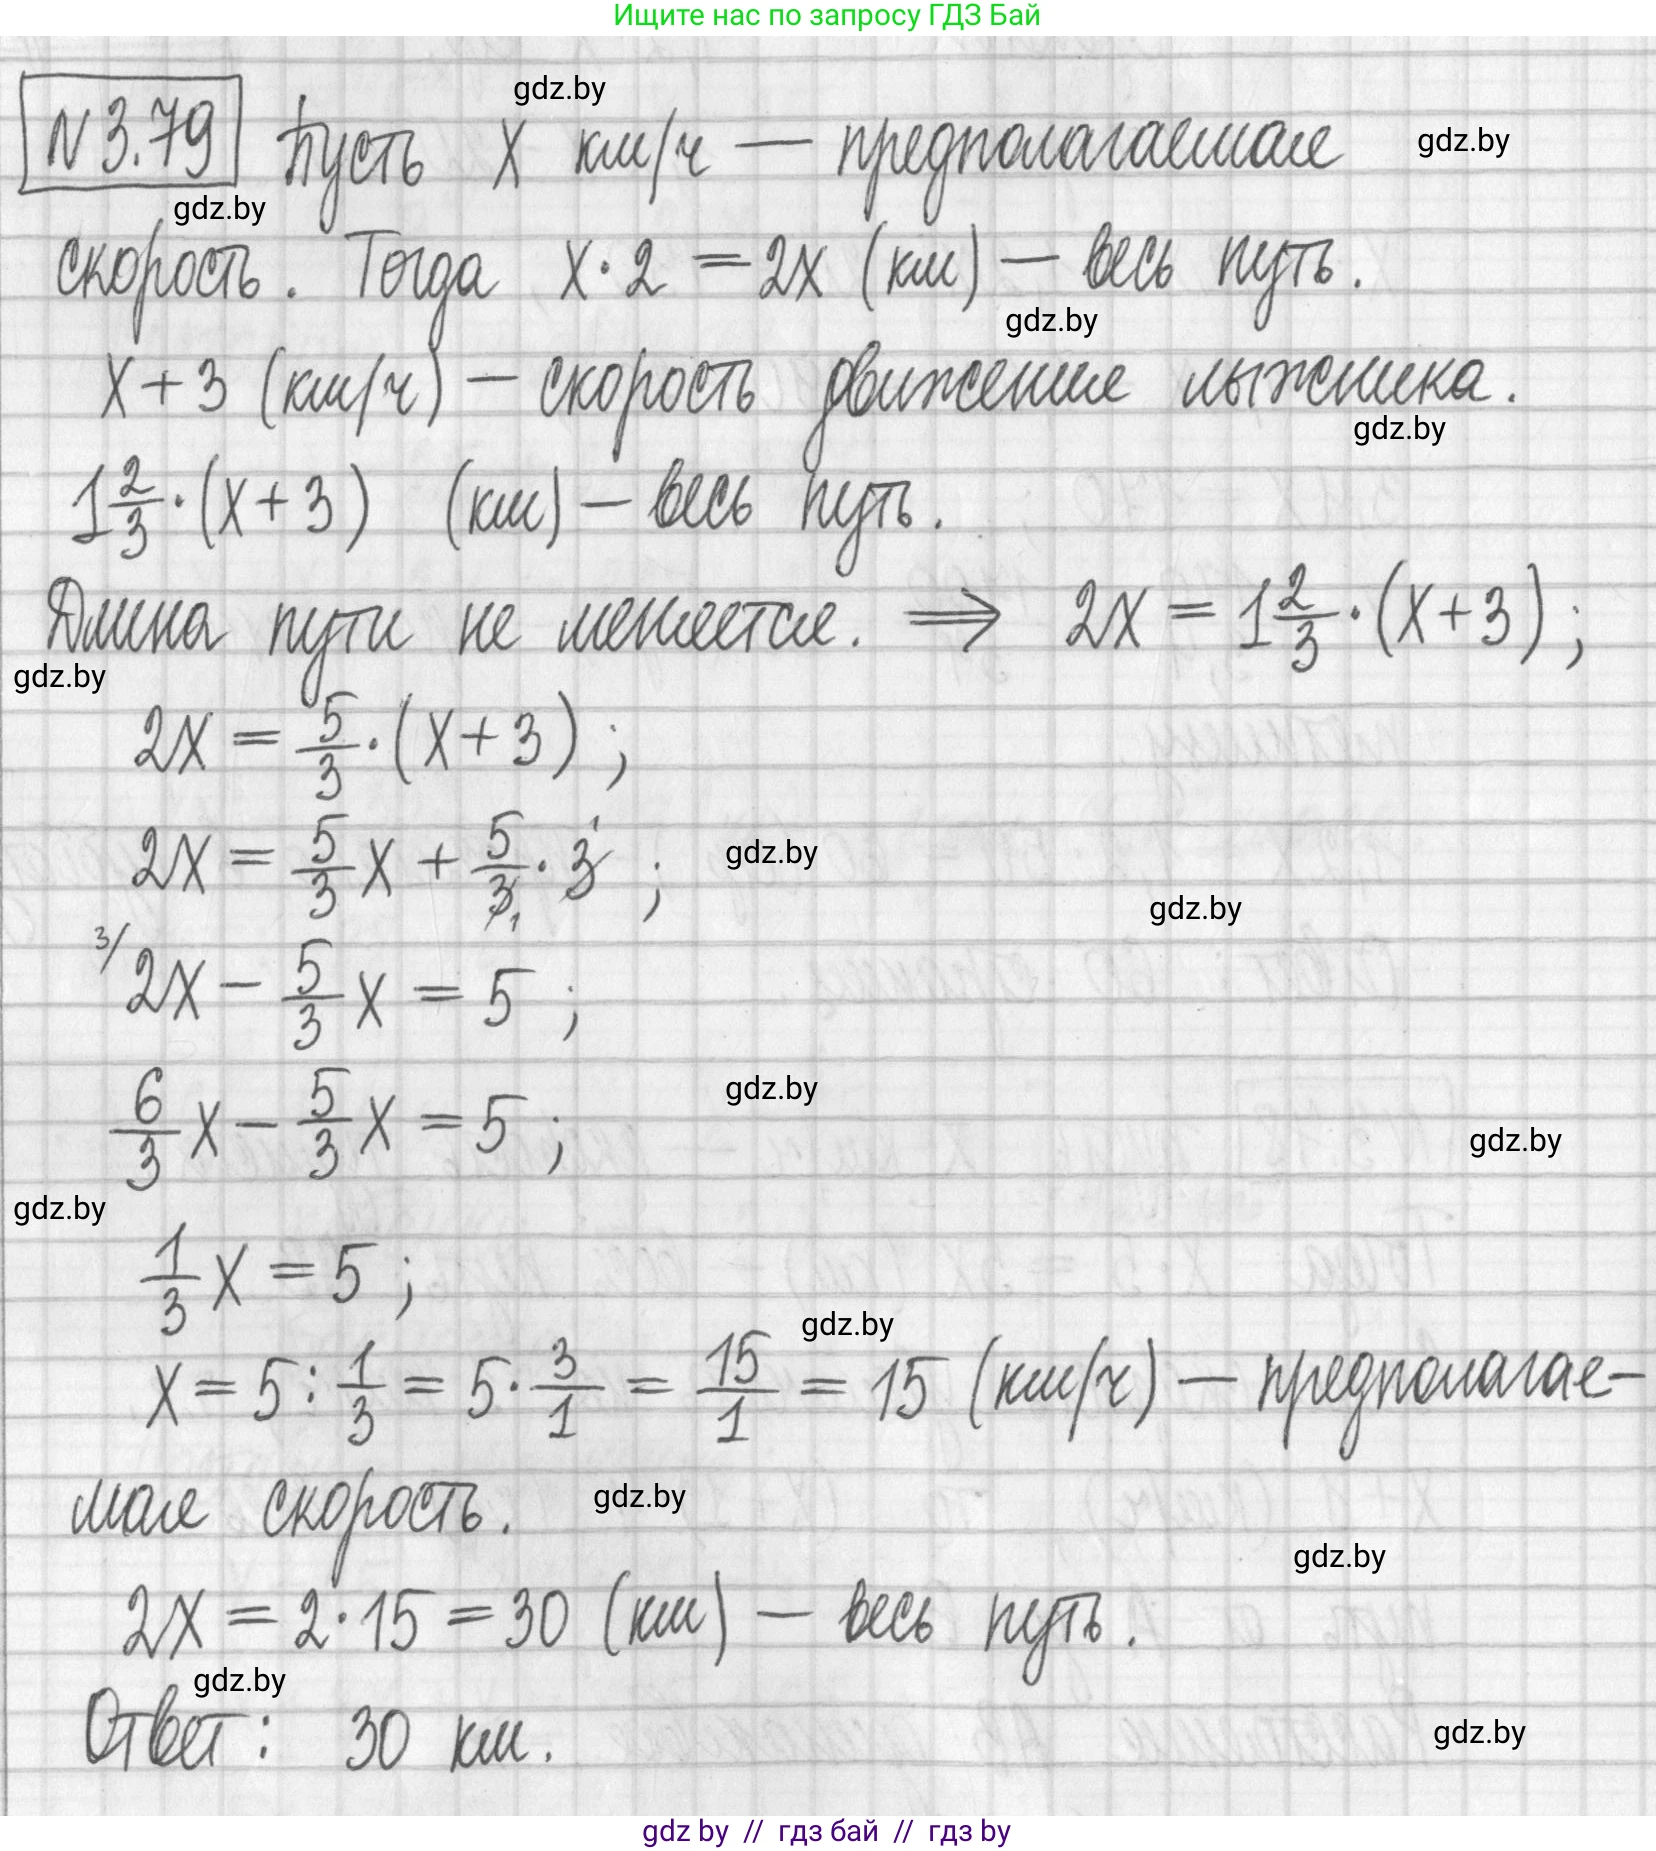 Ищите нас по запросу ГДЗ Бай
gdz.by
N 3.79 Пусть x км/ч — предполагаемая gdz.by
gdz.by
скорость. Тогда x · 2 = 2x (км) — весь путь.
gdz.by
x + 3 (км/ч) — скорость движения лыжника.
gdz.by
1 2/3 · (x + 3) (км) — весь путь.
Длина пути не меняется. ⟹ 2x = 1 2/3 · (x + 3) ;
gdz.by
2x = 5/3 · (x + 3) ;
2x = 5/3 x + 5/3 1 · 3 1 ; gdz.by
gdz.by
3/ 2x − 5/3 x = 5 ;
gdz.by
6/3 x − 5/3 x = 5 ; gdz.by
gdz.by
1/3 x = 5 ;
gdz.by
x = 5 : 1/3 = 5 · 3/1 = 15/1 = 15 (км/ч) — предполагае-
мая скорость. gdz.by
gdz.by
2x = 2 · 15 = 30 (км) — весь путь.
gdz.by
Ответ : 30 км. gdz.by
gdz by // гдз бай // гдз by